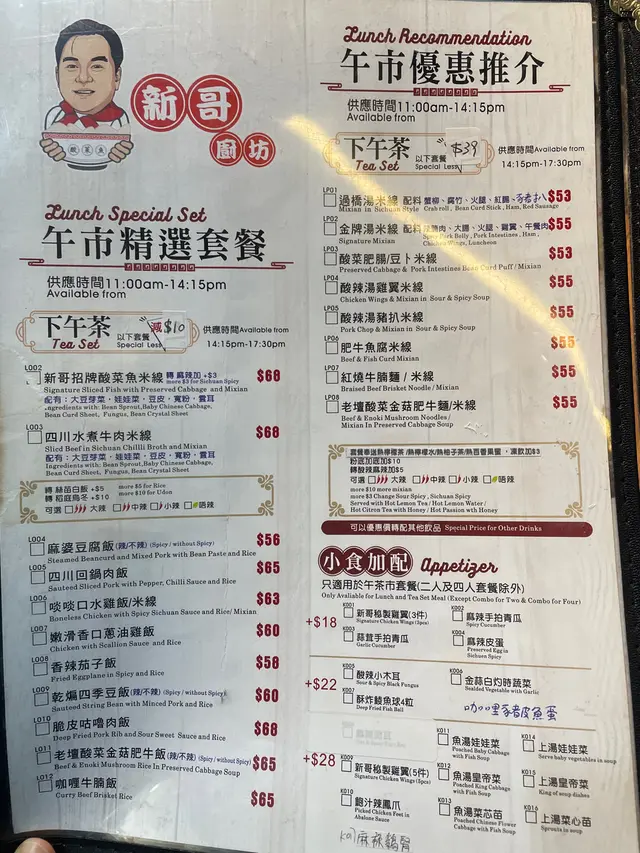 酸菜魚
新哥
廚坊
Lunch Special Set
午市精選套餐
供應時間11:00am-14:15pm
Available from
下午茶
Tea Set
以下套餐
Special Less
減$10
供應時間Available from
14:15pm-17:30pm
L002
新哥招牌酸菜魚米線 轉 麻辣加 +$3 $68
more $3 for Sichuan Spicy
Signature Sliced Fish with Preserved Cabbage and Mixian
配有：大豆芽菜，娃娃菜，豆皮，寬粉，雲耳
Ingredients with: Bean Sprout,Baby Chinese Cabbage,
Bean Curd Sheet, Fungus, Bean Crystal Sheet
L003
四川水煮牛肉米線 $68
Sliced Beef in Sichuan Chillli Broth and Mixian
配有：大豆芽菜，娃娃菜，豆皮，寬粉，雲耳
Ingredients with: Bean Sprout,Baby Chinese Cabbage,
Bean Curd Sheet, Fungus, Bean Crystal Sheet
轉 絲苗白飯 +$5 more $5 for Rice
轉 稻庭烏冬 +$10 more $10 for Udon
可選 大辣 中辣 小辣 唔辣
L004
麻婆豆腐飯(辣/不辣) (Spicy / without Spicy) $56
Steamed Beancurd and Mixed Pork with Bean Paste and Rice
L005
四川回鍋肉飯 $65
Sauteed Sliced Pork with Pepper, Chilli Sauce and Rice
L006
啖啖口水雞飯/米線 $63
Boneless Chicken with Spicy Sichuan Sauce and Rice/ Mixian
L007
嫩滑香口蔥油雞飯 $60
Chicken with Scallion Sauce and Rice
L008
香辣茄子飯 $58
Fried Eggplane in Spicy and Rice
L009
乾煸四季豆飯(辣/不辣) (Spicy / without Spicy) $60
Sauteed String Bean with Minced Pork and Rice
L010
脆皮咕嚕肉飯 $68
Deep Fried Pork Rib and Sour Sweet Sauce and Rice
L011
老壇酸菜金菇肥牛飯(辣/不辣) (Spicy / without Spicy) $65
Beef & Enoki Mushroom Rice In Preserved Cabbage Soup
L012
咖喱牛腩飯 $65
Curry Beef Brisket Rice
Lunch Recommendation
午市優惠推介
供應時間11:00am-14:15pm
Available from
下午茶
Tea Set
以下套餐
Special Less
$39
供應時間Available from
14:15pm-17:30pm
LP01
過橋湯米線 配料 蟹柳、腐竹、火腿、紅腸、 $53
Mixian in Sichuan Style Crab roll, Bean Curd Stick, Ham, Red Sausage
LP02
金牌湯米線 配料 大腸、火腿、雞翼、午餐肉 $55
Signature Mixian Spicy Pork Belly, Pork Intestines, Ham,
Chicken Wings, Luncheon
LP03
酸菜肥腸/豆卜米線 $53
Preserved Cabbage & Pork Intestines Bean Curd Puff / Mixian
LP04
酸辣湯雞翼米線 $55
Chicken Wings & Mixian in Sour & Spicy Soup
LP05
酸辣湯豬扒米線 $55
Pork Chop & Mixian in Sour & Spicy Soup
LP06
肥牛魚腐米線 $55
Beef & Fish Curd Mixian
LP07
紅燒牛腩麵 / 米線 $55
Braised Beef Brisket Noodle / Mixian
LP08
老壇酸菜金菇肥牛麵/米線 $55
Beef & Enoki Mushroom Noodles /
Mixian In Preserved Cabbage Soup
套餐奉送熱檸檬茶/熱檸檬水/熱柚子茶/熱百香果蜜，凍飲加$3
粉底加底加$10
轉酸辣麻辣加$5
可選 大辣 中辣 小辣 唔辣
more $10 more mixian
more $3 Change Sour Spicy , Sichuan Spicy
Served with Hot Lemon Tea / Hot Lemon Water /
Hot Citron Tea with Honey / Hot Passion with Honey
可以優惠價轉配其他飲品 Special Price for Other Drinks
小食加配 Appetizer
只適用於午茶市套餐(二人及四人套餐除外)
Only Available for Lunch and Tea Set Meal (Except Combo for Two & Combo for Four)
+$18
K001
新哥秘製雞翼(3件)
Signature Chicken Wings (3pcs)
K002
麻辣手拍青瓜
Spicy Cucumber
K003
蒜茸手拍青瓜
Garlic Cucumber
K004
麻辣皮蛋
Preserved Egg in
Sichuan Spicy
+$22
K005
酸辣小木耳
Sour & Spicy Black Fungus
K006
金蒜白灼時蔬菜
Sealded Vegetable with Garlic
K007
酥炸鯪魚球4粒
Deep Fried Fish Ball
咖哩豬皮魚蛋
+$28
K009
新哥秘製雞翼(5件)
Signature Chicken Wings (5pcs)
K010
鮑汁辣鳳爪
Picked Chicken Feet in
Abalone Sauce
K011
魚湯娃娃菜
Poached Baby Cabbage
with Fish Soup
K012
魚湯皇帝菜
Poached King Cabbage
with Fish Soup
K013
魚湯菜心苗
Poached Chinese Flower
Cabbage with Fish Soup
K014
上湯娃娃菜
Serve baby vegetables in soup
K015
上湯皇帝菜
King of soup dishes
K016
上湯菜心苗
Sprouts in soup